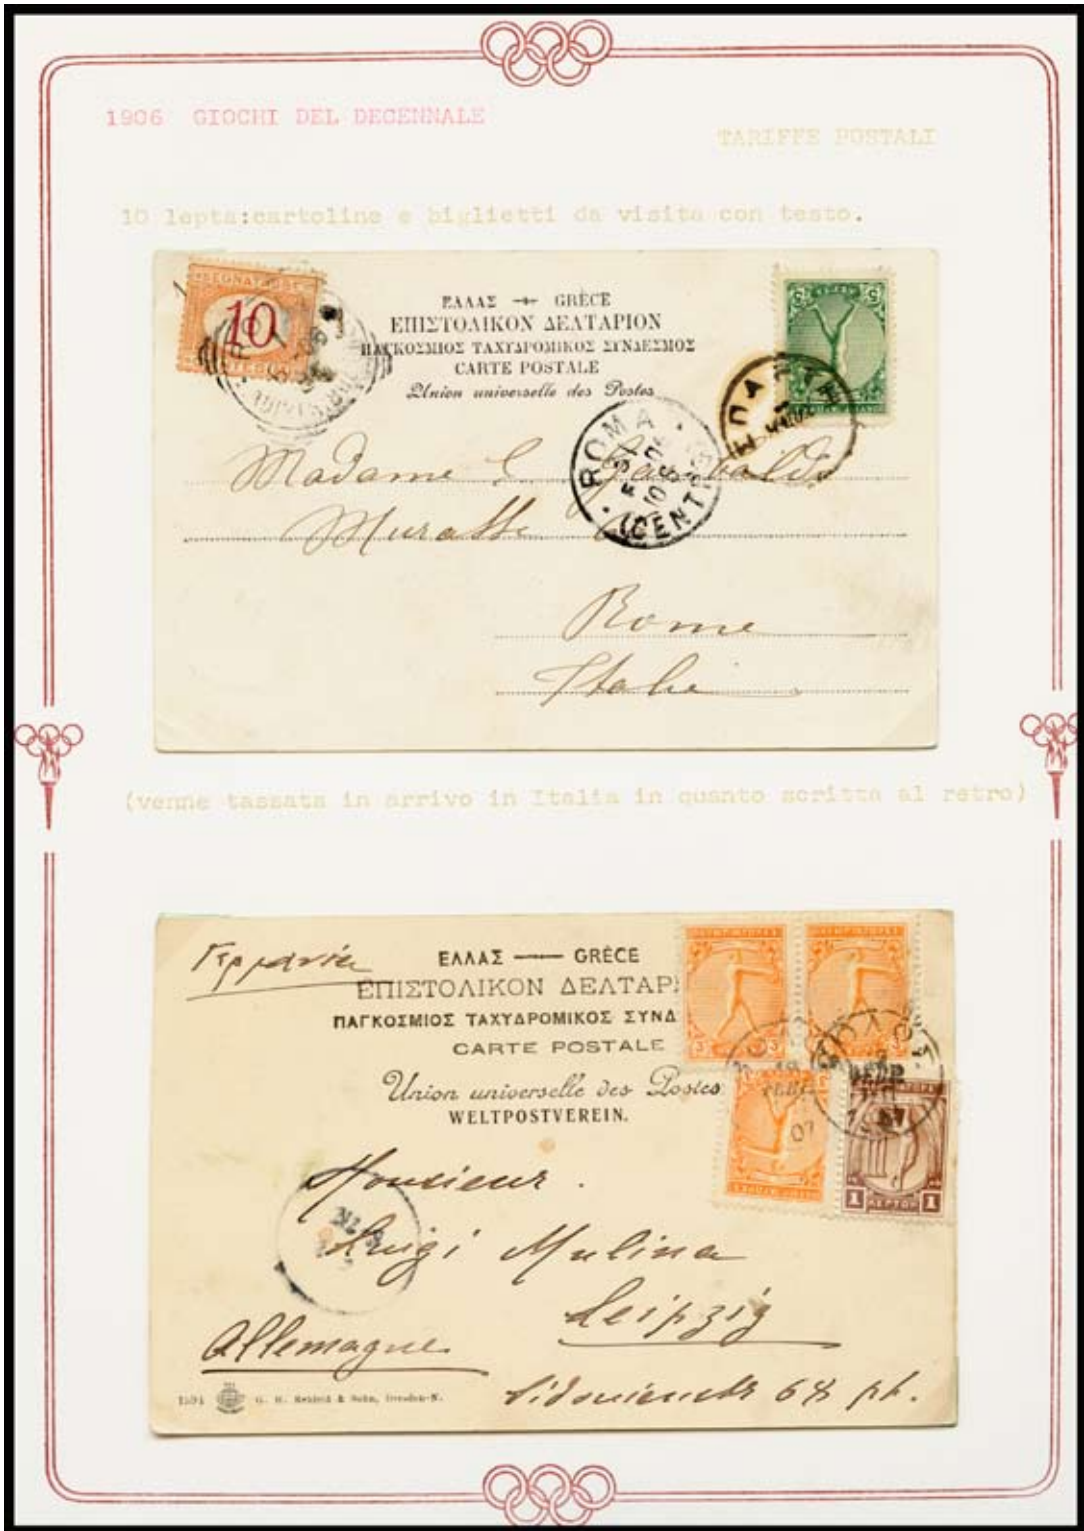 1906 GIOCHI DEL DECENNALE
TARIFFE POSTALI
10 lepta:cartoline e biglietti da visita con testo.
SEGNATASSE
10
ΕΛΛΑΣ GRÈCE
ΕΠΙΣΤΟΛΙΚΟΝ ΔΕΛΤΑΡΙΟΝ
ΠΑΓΚΟΣΜΙΟΣ ΤΑΧΥΔΡΟΜΙΚΟΣ ΣΥΝΔΕΣΜΟΣ
CARTE POSTALE
Union universelle des Postes
5 5
ROMA
(CENTRO)
Madame
Rome
Italie
(venne tassata in arrivo in Italia in quanto scritta al retro)
Γερμανία
ΕΛΛΑΣ — GRÈCE
ΕΠΙΣΤΟΛΙΚΟΝ ΔΕΛΤΑΡ
ΠΑΓΚΟΣΜΙΟΣ ΤΑΧΥΔΡΟΜΙΚΟΣ ΣΥΝΔ
CARTE POSTALE
Union universelle des Postes
WELTPOSTVEREIN.
3 3
07
1 ΛΕΠΤΟΝ 1
Monsieur.
Luigi Mulina
Leipzig
Allemagne
Sidonienstr 68 pt.